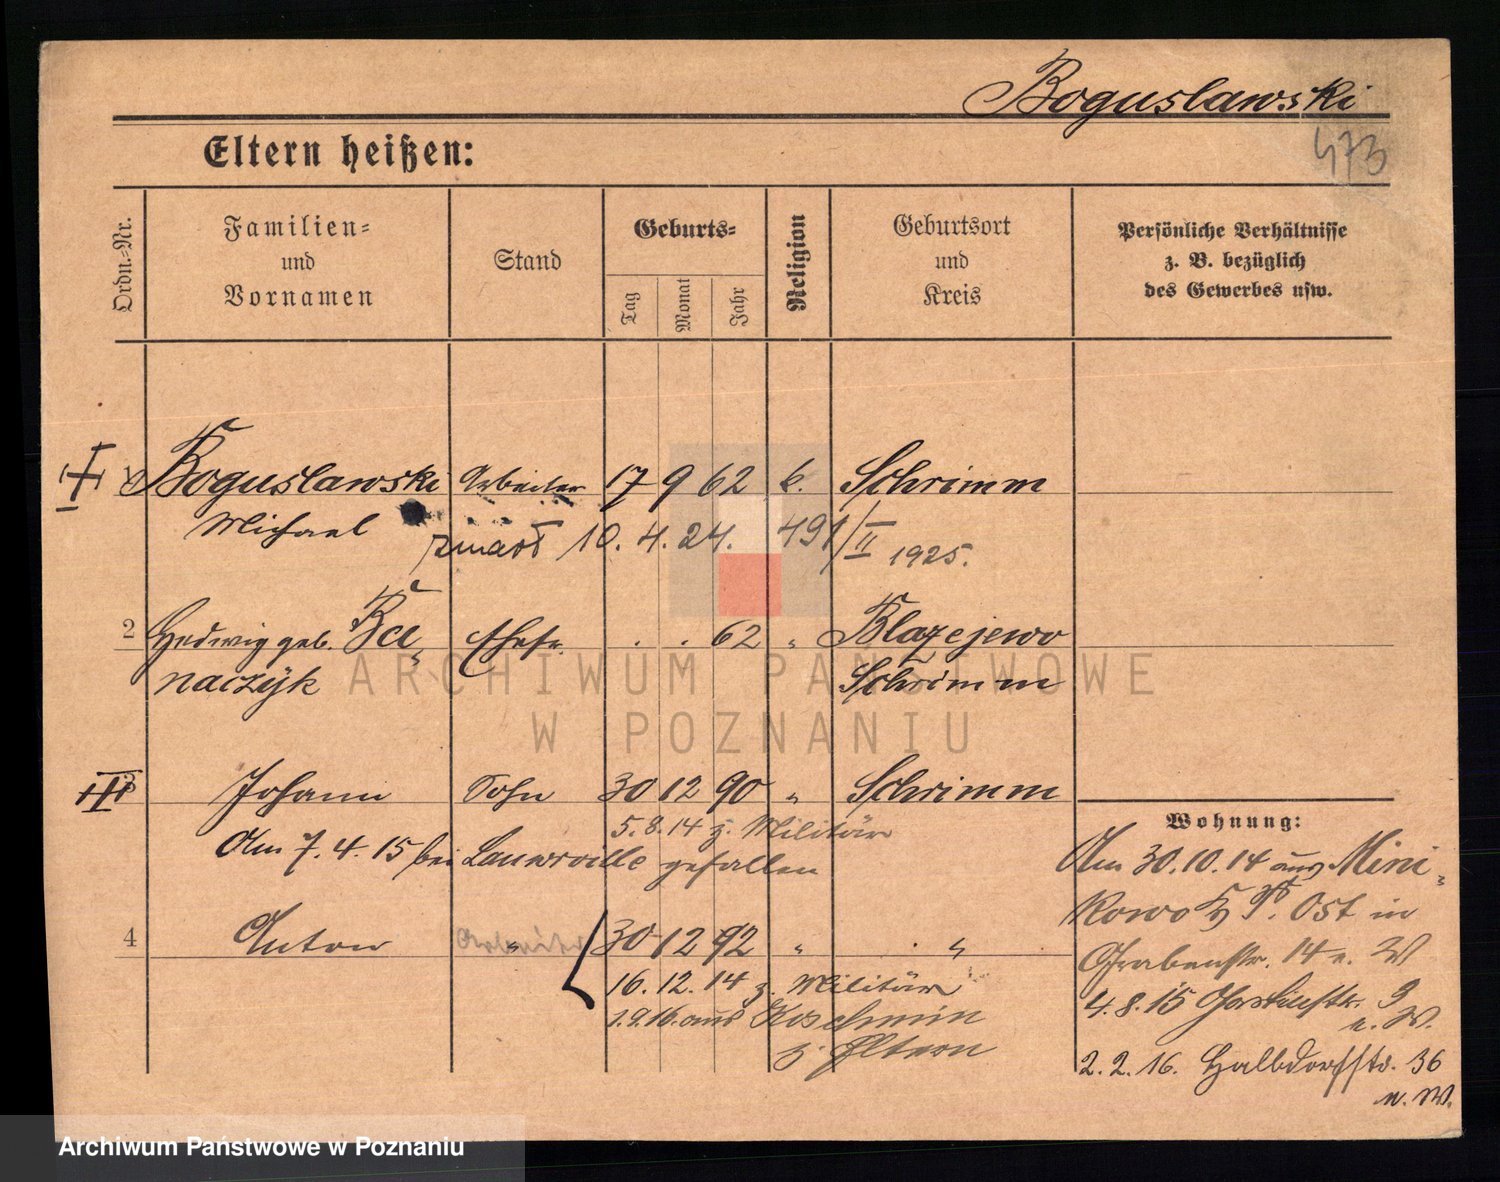 Boguslawski
473
Eltern heißen:
Ordn.-Nr.
Familien-
und
Vornamen
Stand
Geburts-
Tag
Monat
Jahr
Religion
Geburtsort
und
Kreis
Persönliche Verhältnisse
z. B. bezüglich
des Gewerbes usw.
I Boguslawski Arbeiter 17 9 62 k. Schrimm
Michael zmarł 10. 4. 24. 491/II 1925.
2 Hedwig geb. Ehefr. . . 62 " Blazejewo
naczÿk Schrimm
III 3 Johann Sohn 30 12 90 " Schrimm
5.8.14 z. Militär
Am 7.4.15 bei gefallen
4 Anton Arbeiter " 30 12 92 " . "
16.12.14 z. Militär
1.9.16. aus Koschmin
z. Eltern
Wohnung:
Am 30.10.14 aus Mini-
kowo Kr. P. Ost in
Grabenstr. 14 n. W
4.8.15
n. W.
2.2.16. Halbdorfstr. 36
n. W.
ARCHIWUM PAŃSTWOWE
W POZNANIU
Archiwum Państwowe w Poznaniu